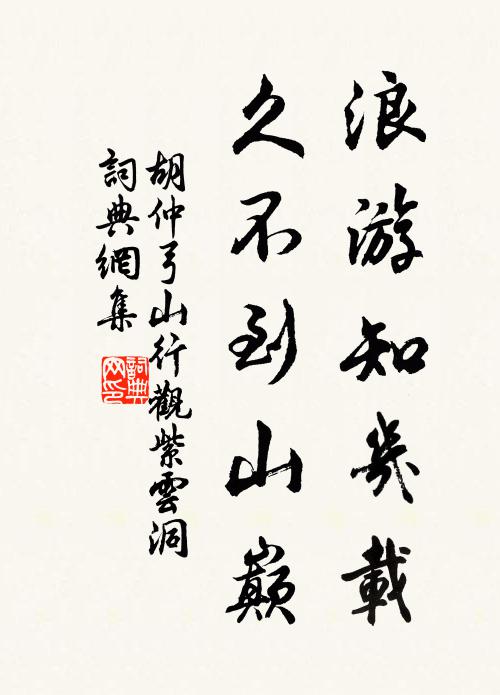 浪游知幾載
久不到山巔
胡仲弓山行觀紫雲洞
詞典網集
詞典網印